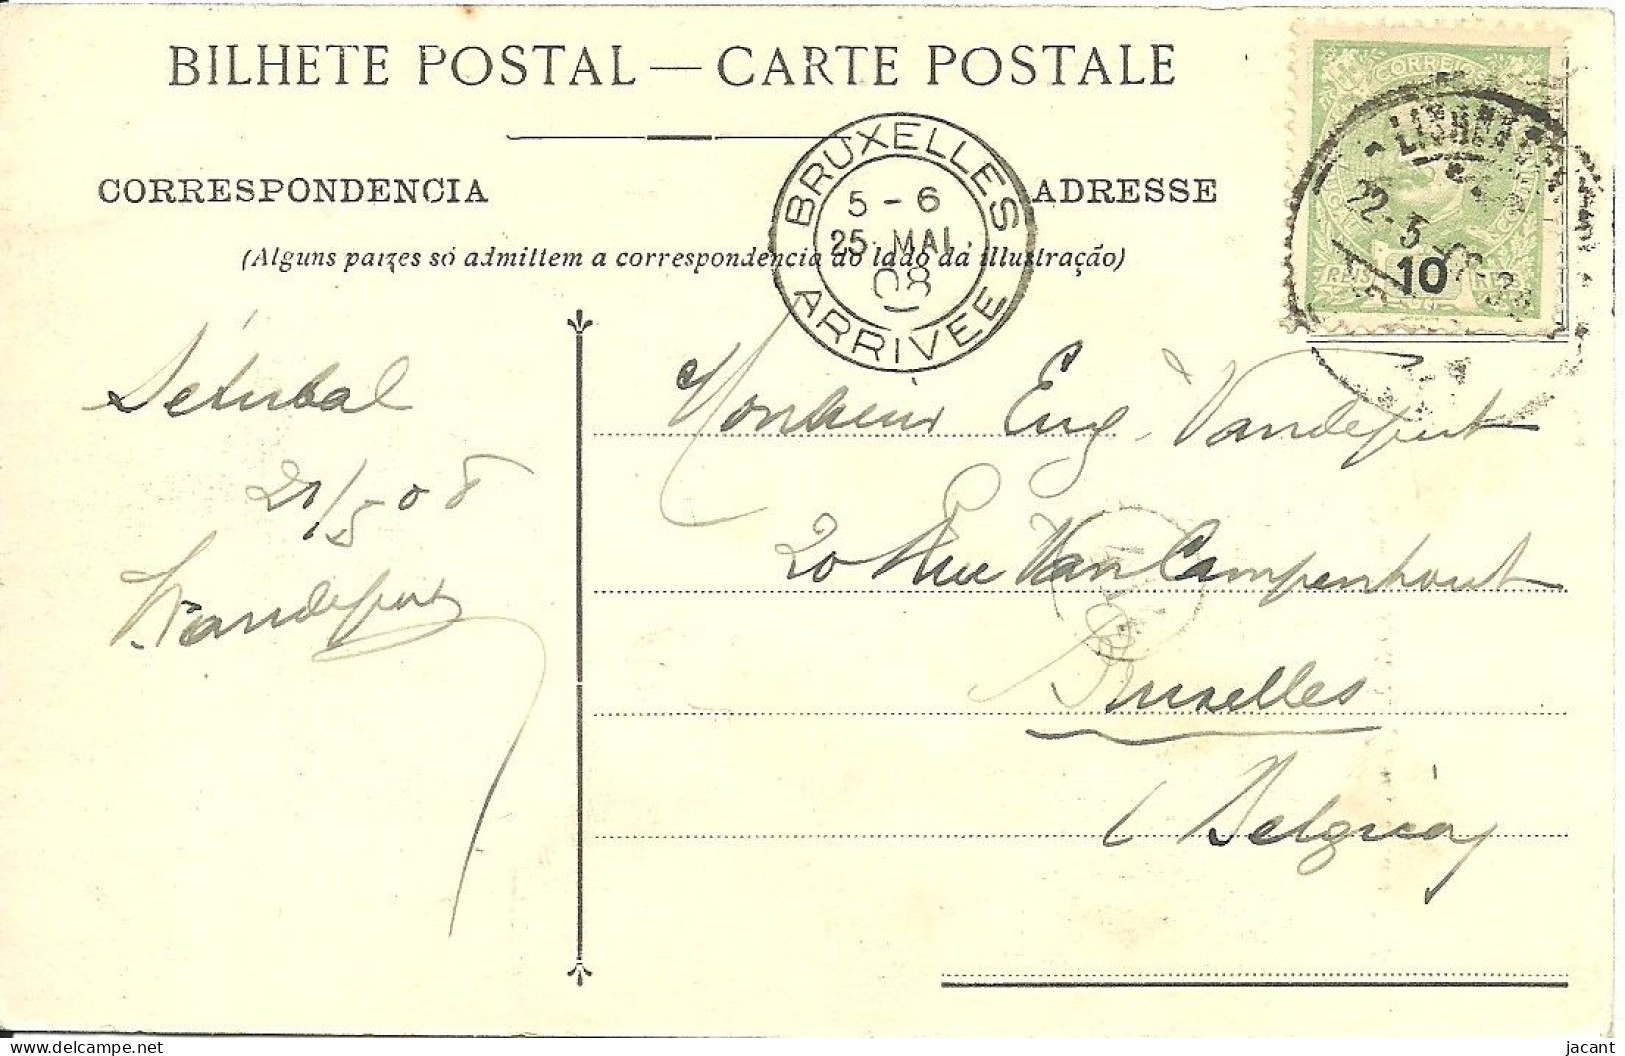 BILHETE POSTAL — CARTE POSTALE
CORRESPONDENCIA
ADRESSE
(Alguns paizes só admittem a correspondencia ao lado da illustração)
BRUXELLES
5 - 6
25 MAI
08
ARRIVEE
CORREIOS
LISBOA
22-5
10
REIS
Setubal
21/5 08
Vandeput
Monsieur Eug. Vandeput
20 Rue Van Campenhout
Bruxelles
(Belgica)
delcampe.net
jacant